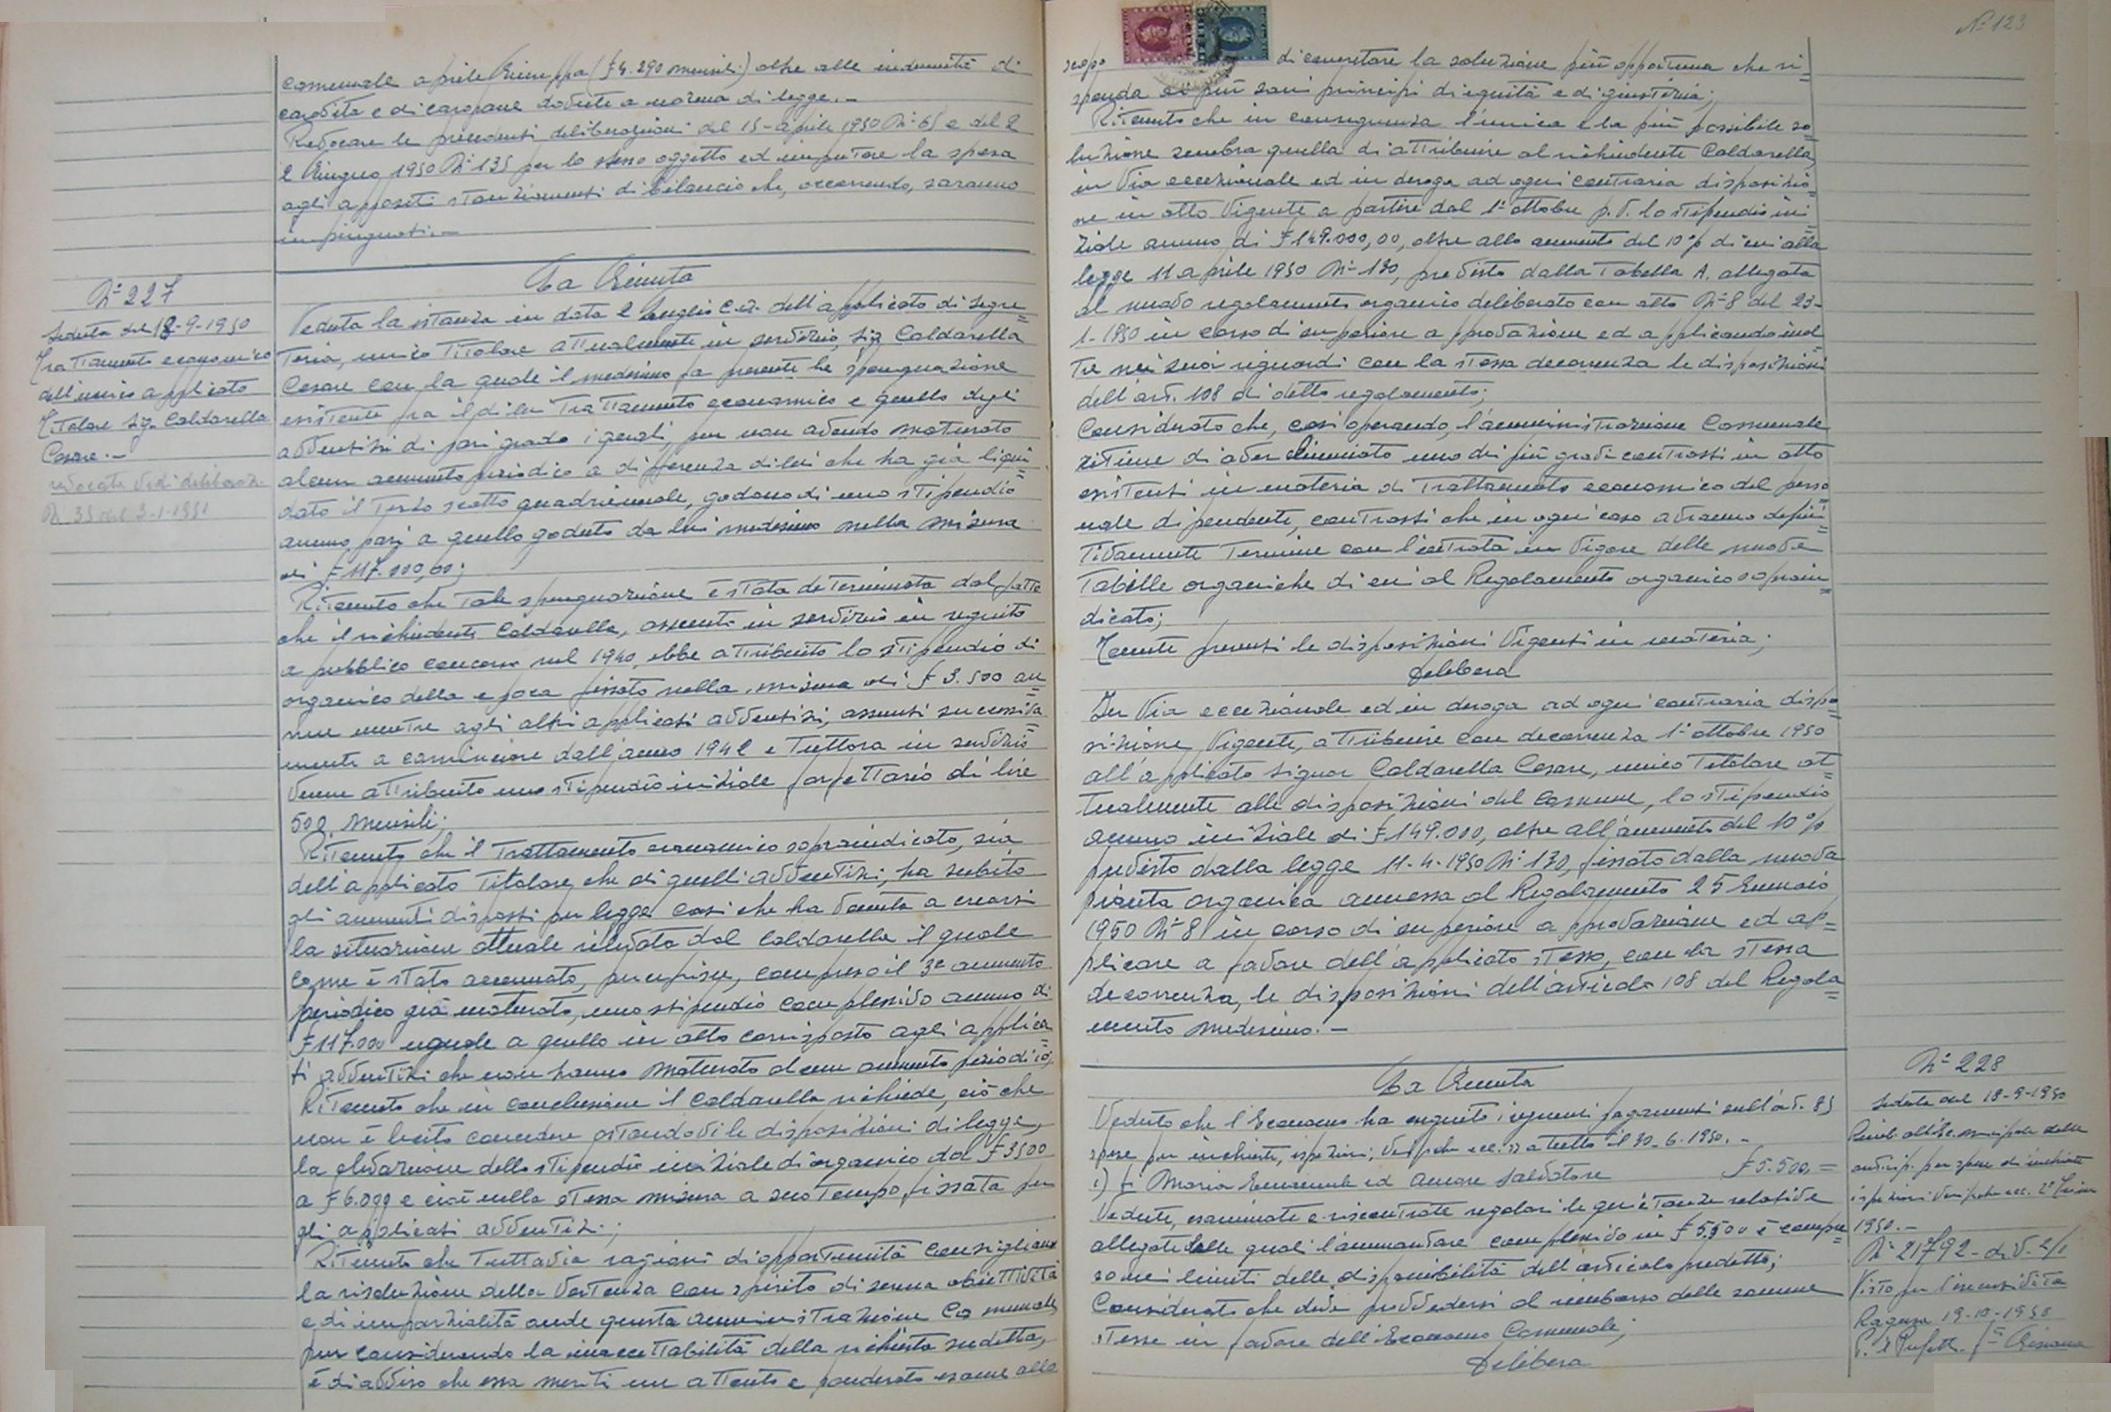 comunale a prele Giuseppa (₤ 4.290 mensili) oltre alle indennità di
carovita e di caropane dovute a norma di legge. -
Revocare le precedenti deliberazioni del 15 - aprile 1950 N° 65 e del 2
2 Giugno 1950 N° 135 per lo stesso oggetto ed imputare la spesa
agli appositi stanziamenti di bilancio che, occorrendo, saranno
impinguati. -
N° 227
Seduta del 18-9-1950
Trattamento economico
dell'unico applicato
Titolare Sig. Caldarella
Cesare. -
revocata vedi deliberaz.
N. 35 del 3-1-1951
La Giunta
Veduta la istanza in data 2 Luglio c.a. dell'applicato di segre=
teria, unico titolare attualmente in servizio, Sig. Caldarella
Cesare con la quale il medesimo fa presente la sperequazione
esistente fra il di lui trattamento economico e quello degli
avventizi di pari grado i quali, pur non avendo maturato
alcun aumento periodico a differenza di lui che ha già liqui=
dato il terzo scatto quadriennale, godono di uno stipendio
annuo pari a quello goduto da lui medesimo nella misura
di ₤ 117.000,00;
Ritenuto che tale sperequazione è stata determinata dal fatto
che il richiedente Caldarella, assunto in servizio in seguito
a pubblico concorso nel 1940, ebbe attribuito lo stipendio di
organico della epoca fissato nella misura di ₤ 3.500 an=
nue mentre agli altri applicati avventizi, assunti successiva=
mente a cominciare dall'anno 1942 e tuttora in servizio
venne attribuito uno stipendio iniziale forfettario di lire
500 mensili;
Ritenuto che il trattamento economico sopraindicato, sia
dell'applicato titolare che di quelli avventizi, ha subito
gli aumenti disposti per legge così che ha venuta a crearsi
la situazione attuale rilevata dal Caldarella il quale
come è stato accennato, percepisce, compreso il 3° aumento
periodico già maturato, uno stipendio complessivo annuo di
₤ 117.000 uguale a quello in atto corrisposto agli applica=
ti avventizi che non hanno maturato alcun aumento periodico;
Ritenuto che in conclusione il Caldarella richiede, ciò che
non è lecito concedere ostandovi le disposizioni di legge,
la elevazione dello stipendio iniziale di organico da ₤ 3500
a ₤ 6.000 e cioè nella stessa misura a suo tempo fissata per
gli applicati avventizi;
Ritenuto che tuttavia ragioni di opportunità consigliano
la risoluzione della vertenza con spirito di serena obiettività
e di imparzialità onde questa amministrazione Comunale,
pur considerando la inaccettabilità della richiesta suddetta,
è di avviso che essa meriti un attento e ponderato esame allo
N° 123
scopo di concretare la soluzione più opportuna che ri=
sponda ai più sani principi di equità e di giustizia;
Ritenuto che in conseguenza l'unica e la più possibile so=
luzione sembra quella di attribuire al richiedente Caldarella
in via eccezionale ed in deroga ad ogni contraria disposizio=
ne in atto vigente a partire dal 1° ottobre p.v. lo stipendio ini=
ziale annuo di ₤ 149.000,00, oltre allo aumento del 10% di cui alla
legge 11 aprile 1950 N° 130, previsto dalla Tabella A. allegata
al nuovo regolamento organico deliberato con atto N° 8 del 25-
1-1950 in corso di superiore approvazione ed applicando inol=
tre nei suoi riguardi con la stessa decorrenza le disposizioni
dell'art. 108 di detto regolamento;
Considerato che, così operando, l'amministrazione Comunale
ritiene di aver eliminato uno dei più gravi contrasti in atto
esistenti in materia di trattamento economico del perso=
nale dipendente, contrasti che in ogni caso avranno defini=
tivamente termine con l'entrata in vigore delle nuove
Tabelle organiche di cui al Regolamento organico soprain=
dicato;
Tenute presenti le disposizioni vigenti in materia;
Delibera
In via eccezionale ed in deroga ad ogni contraria dispo=
sizione vigente, attribuire con decorrenza 1° ottobre 1950
all'applicato Signor Caldarella Cesare, unico titolare at=
tualmente alle disposizioni del Comune, lo stipendio
annuo iniziale di ₤ 149.000, oltre all'aumento del 10%
previsto dalla legge 11-4-1950 N° 130, fissato dalla nuova
pianta organica annessa al Regolamento 25 Gennaio
1950 N° 8 in corso di superiore approvazione ed ap=
plicare a favore dell'applicato stesso, con la stessa
decorrenza, le disposizioni dell'articolo 108 del Regola=
mento medesimo. -
La Giunta
Veduto che l'Economo ha eseguito i seguenti pagamenti sull'art. 85
spese per inchieste, ispezioni, verifiche ecc. a tutto il 30-6-1950. -
1) Maria Emanuele ed Amore Salvatore ₤ 5.500. =
Vedute, esaminate e riscontrate regolari le quietanze relative
allegate delle quali l'ammontare complessivo in ₤ 5.500 è compre=
so nei limiti delle disponibilità dell'articolo predetto;
Considerato che deve provvedersi al rimborso delle somme
stesse in favore dell'Economo Comunale;
Delibera
N° 228
Seduta del 18-9-1950
anticip. per spese di inchieste
ispezioni verifiche ecc. 2° Trim
1950. -
N° 21792 - div. 2/1
Visto per l'esecutività
Ragusa 19-10-1950
P. il Prefetto